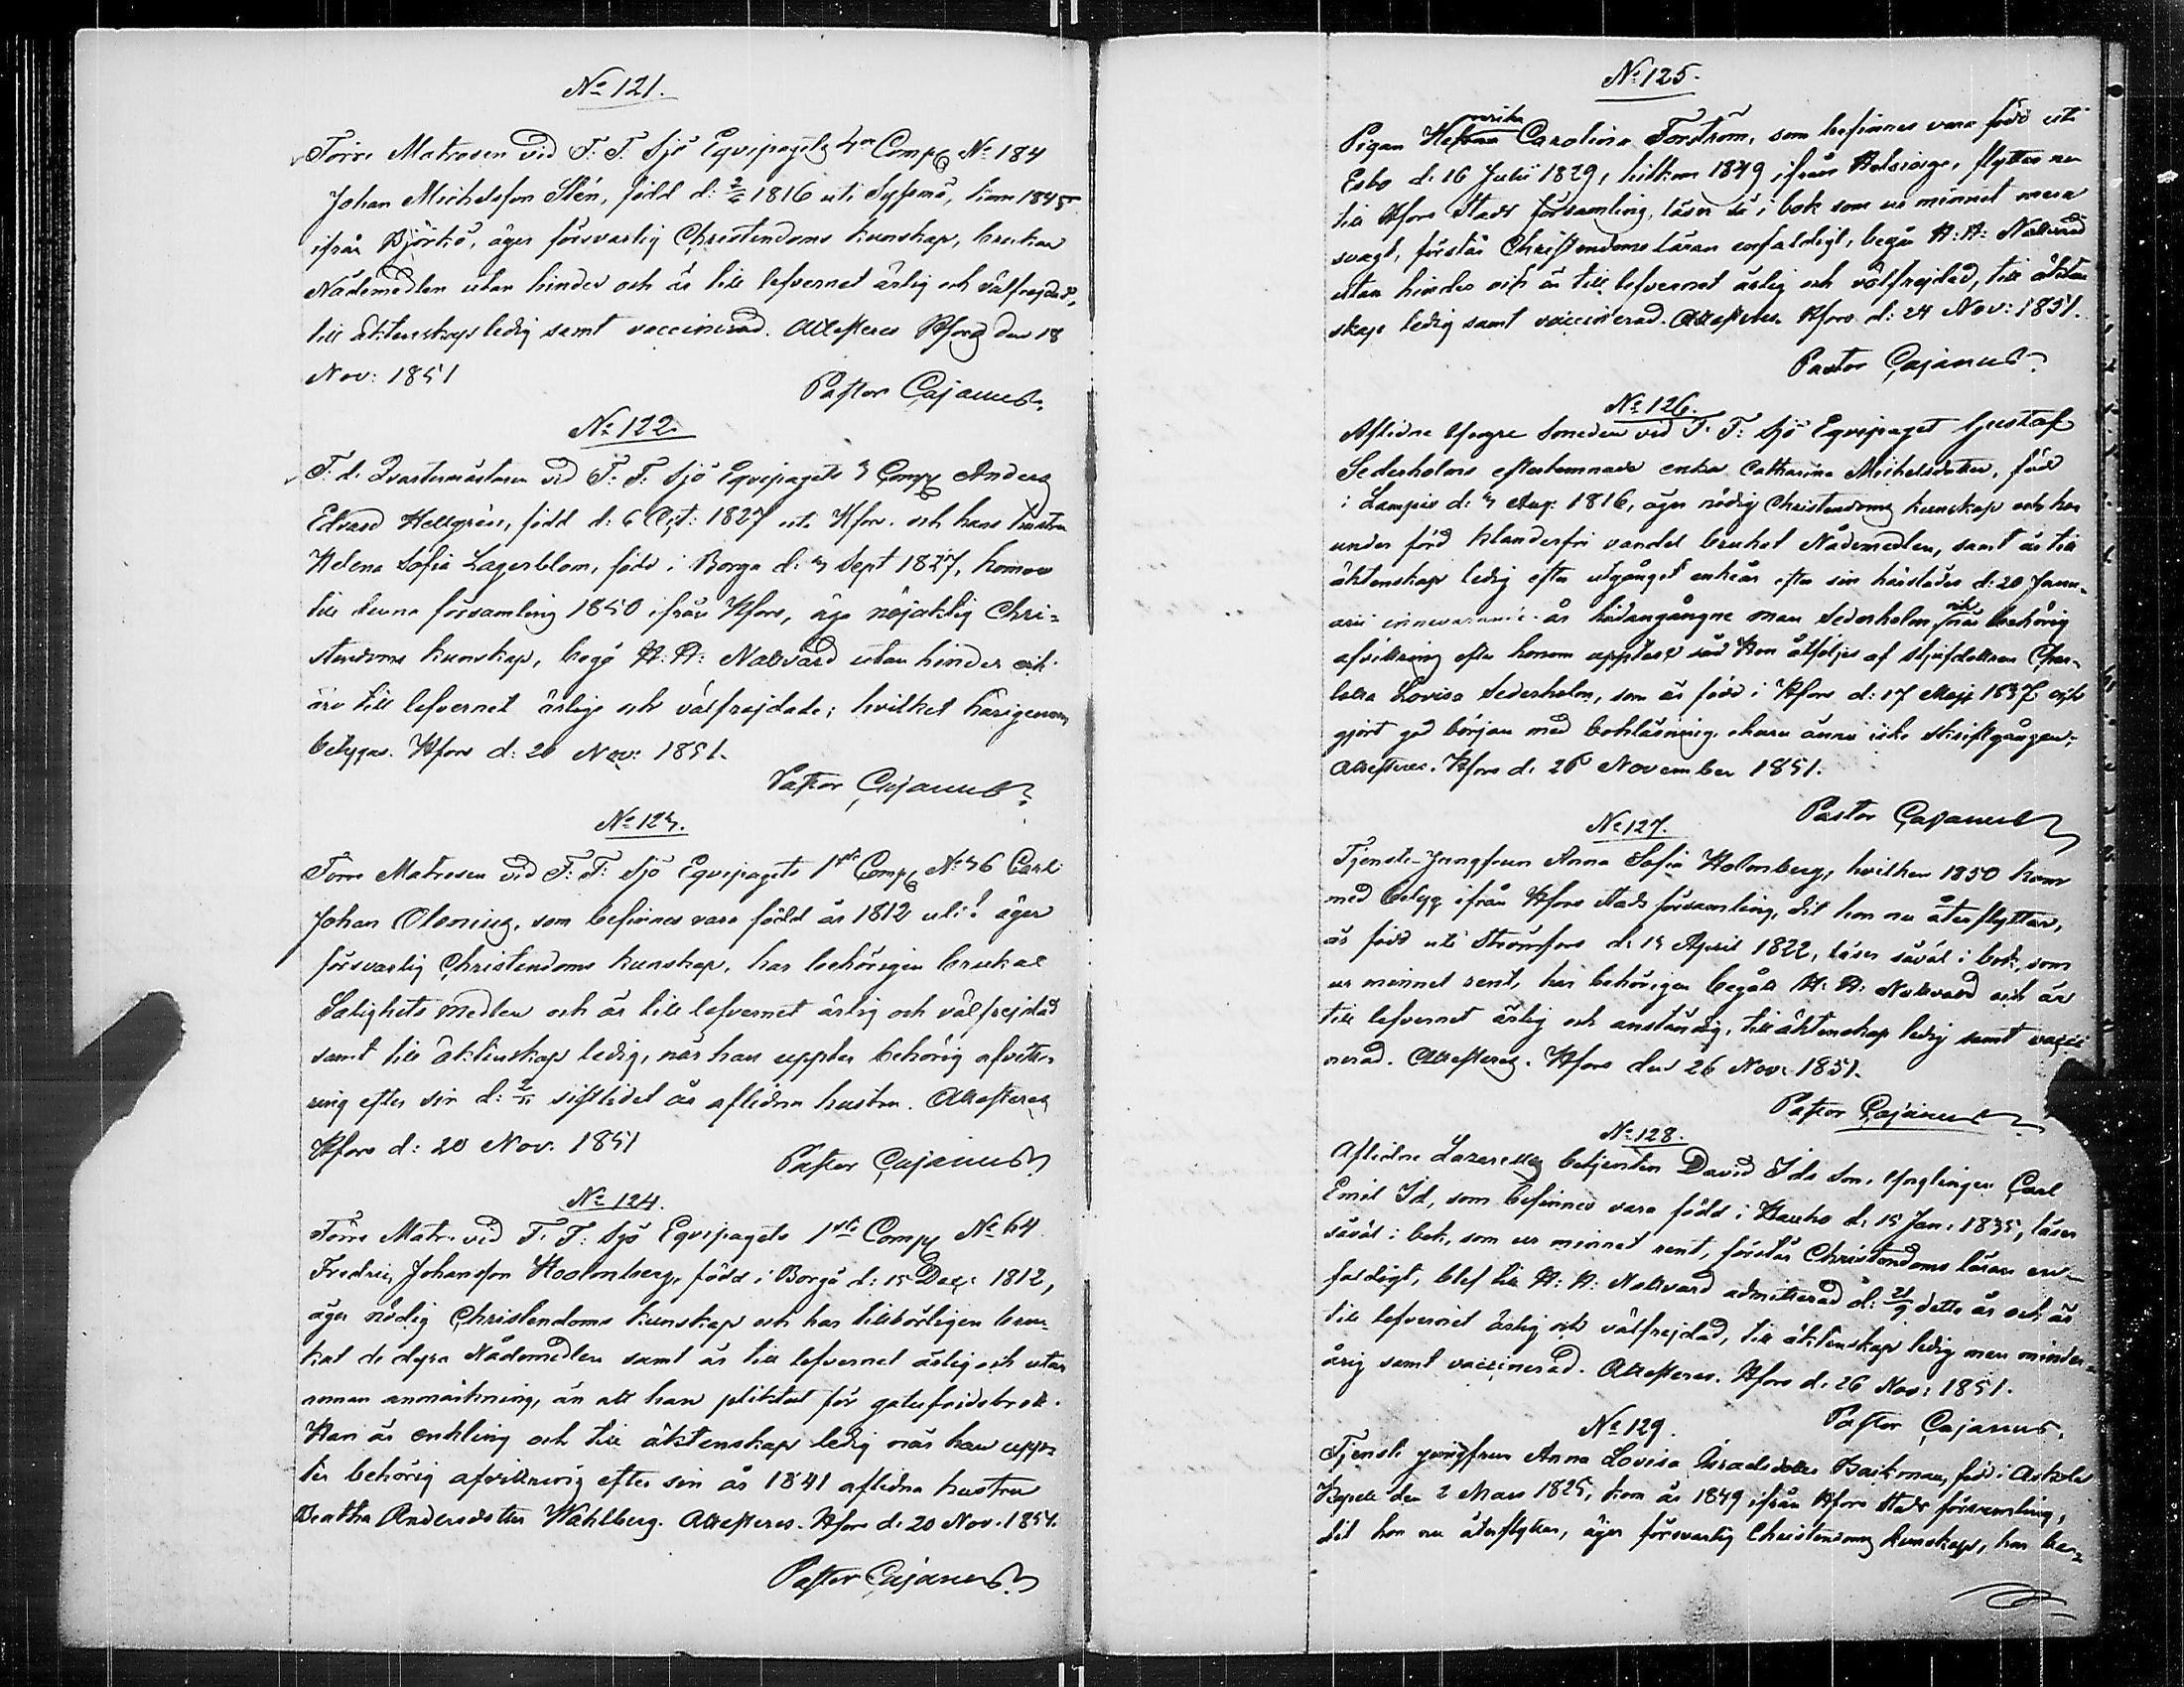 No 121.
Förre Matrosen vid F. F. Sjö Eqvipagets 4de Comp No 184
Johan Michelsson Stén, född d: 1816 uti Sysmä, kom 1845
ifrån Björkö, äger försvarlig Christendoms kunskap, brukar
Nådemedlen utan hinder och är till lefvernet ärlig och välfrejdad,
till äktenskap ledig samt vaccinerad. Attesteras Hfors den 18
Nov: 1851
Pastor Cajanus
No 122.
F. d. Qvartermästaren vid F. F. Sjö Eqvipagets 3 Comp Anders
Edvard Hellgrén, född d: 6 1827 uti Hfors. och hans hustru
Helena Sofia Lagerblom, född i Borgå d: 3 Sept 1827, komne
till denna församling 1850 ifrån Hfors, äga nöjaktig Chri-
stendoms kunskap, begå H: H: Nattvard utan hinder och
äro till lefvernet ärlige och välfrejdade; hvilket härigenom
betygas. Hfors d: 20 Nov: 1851.
Pastor Cajanus
No 123.
Förre Matrosen vid F: F: Sjö Eqvipagets 1sta Comp No 36 Carl
Johan Olenius, som befinnes vara född år 1812 uti? äger
försvarlig Christendoms kunskap, har behörigen brukat
Salighets medlen och är till lefvernet ärlig och välfrejdad
samt till äktenskap ledig, när han uppter behörig afvitt-
ring efter sin d: sistlidet år aflidna hustru. Attesteras
Hfors d: 20 Nov. 1851
Pastor Cajanus
No 124.
Förre Matr. vid F. F: Sjö Eqvipagets 1sta Comp No 64
Fredric Johansson Hoolmberg, född i Borgå d: 15 Dec: 1812,
äger nödig Christendoms kunskap och har tillbörligen bru-
kat de dyra Nådemedlen samt är till lefvernet ärlig och utan
annan anmärkning, än att han pliktat för gatufridsbrott.
Han är enkling och till äktenskap ledig när han upp-
ter behörig afvittring efter sin år 1841 aflidna hustru
Beatha Andersdotter Wahlberg. Attesteras. Hfors d. 20 Nov. 1851.
Pastor Cajanus
No 125.
Pigan Carolina Forström, som befinnes vara född uti
Esbo d. 16 Julii 1829, hitkom 1849 ifrån Helsinge, flyttar nu
till Hfors Stads församling, läser så i bok som ur minnet mera
svagt, förstår Christendoms läran enfaldigt, begår H: H: Nattvard
utan hinder och är till lefvernet ärlig och välfrejdad, till äkten
skap ledig samt vaccinerad. Attesteras. Hfors d: 24 Nov: 1851.
Pastor Cajanus
No 126.
Aflidne Smeden vid F. F: Sjö Eqvipaget Gustaf
Sederholms efterlemnade enka Catharina Michelsdotter, född
i Lampis d: 3 Aug: 1816, äger nödig Christendoms kunskap och har
under förd klanderfri vandel brukat Nådemedlen, samt är till
äktenskap ledig efter utgånget enkeår efter sin härstädes d: 20 Janu-
arii innevarande år hädangångne man Sederholm när behörig
afvittring efter honom uppter Hon åtföljes af styfdottren Char-
lotta Lovisa Sederholm, som är född i Hfors d: 17 Maji 1837 och
gjort god början med bokläsning. ännu icke skriftgången;
Attesteras. Hfors d. 26 November 1851.
Pastor Cajanus
No 127.
Tjenste-Jungfrun Anna Sofia Holmberg, hvilken 1850 kom
med betyg ifrån Hfors stads församling, dit hon nu återflyttar,
är född uti Strömfors d. 13 April 1822, läser såväl i bok, som
ur minnet rent, har behörigen begått H: H: Nattvard och är
till lefvernet ärlig och anständig, till äktenskap ledig samt vacci
nerad. Attesteras. Hfors den 26 Nov. 1851.
Pastor Cajanus
No 128.
Aflidne Lazaretts betjenten David Ids son, Ynglingen Carl
Emil Id, som befinnes vara född i Hauho d: 15 Jan: 1835, läser
såväl i bok, som ur minnet rent, förstår Christendoms läran en-
faldigt, blef till H: H: Nattvard admitterad d: 21/9 detta år och är
till lefvernet ärlig och välfrejdad, till äktenskap ledig men minder-
årig samt vaccinerad. Attesteras. Hfors d. 26 Nov: 1851.
Pastor Cajanus.
No 129.
Tjenste jungfrun Anna Lovisa född i Askola
Kapell den 2 Mars 1825, kom år 1849 ifrån Hfors Stads församling,
dit hon nu återflyttar, äger försvarlig Christendoms kunskap, har be-